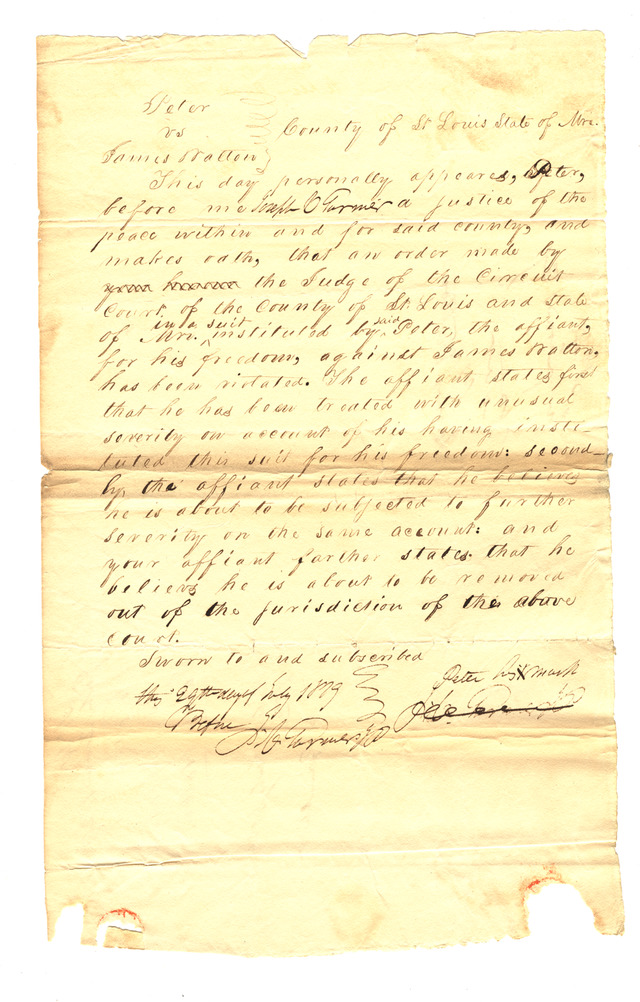 Peter
vs County of St Louis State of Mo.
James Walton
This day personally appeares, Peter,
before me Joseph C Farmer a justice of the
peace within and for said county, and
makes oath, that an order made by
the Judge of the Circuit
Court, of the County of St. Louis and State
of Mo. in a suit instituted by said Peter, the affiant,
for his freedom, against James Walton,
has been violated. The affiant states first
that he has been treated with unusual
severity on account of his having insti-
tuted this suit for his freedom: second-
ly, the affiant states that he believes
he is about to be subjected to further
severity on the same account: and
your affiant farther states that he
believs he is about to be removed
out of the jurisdiction of the above
court.
Sworn to and subscribed
this 29th day of July 1839 Peter his X mark
Before J. C. Farmer JP